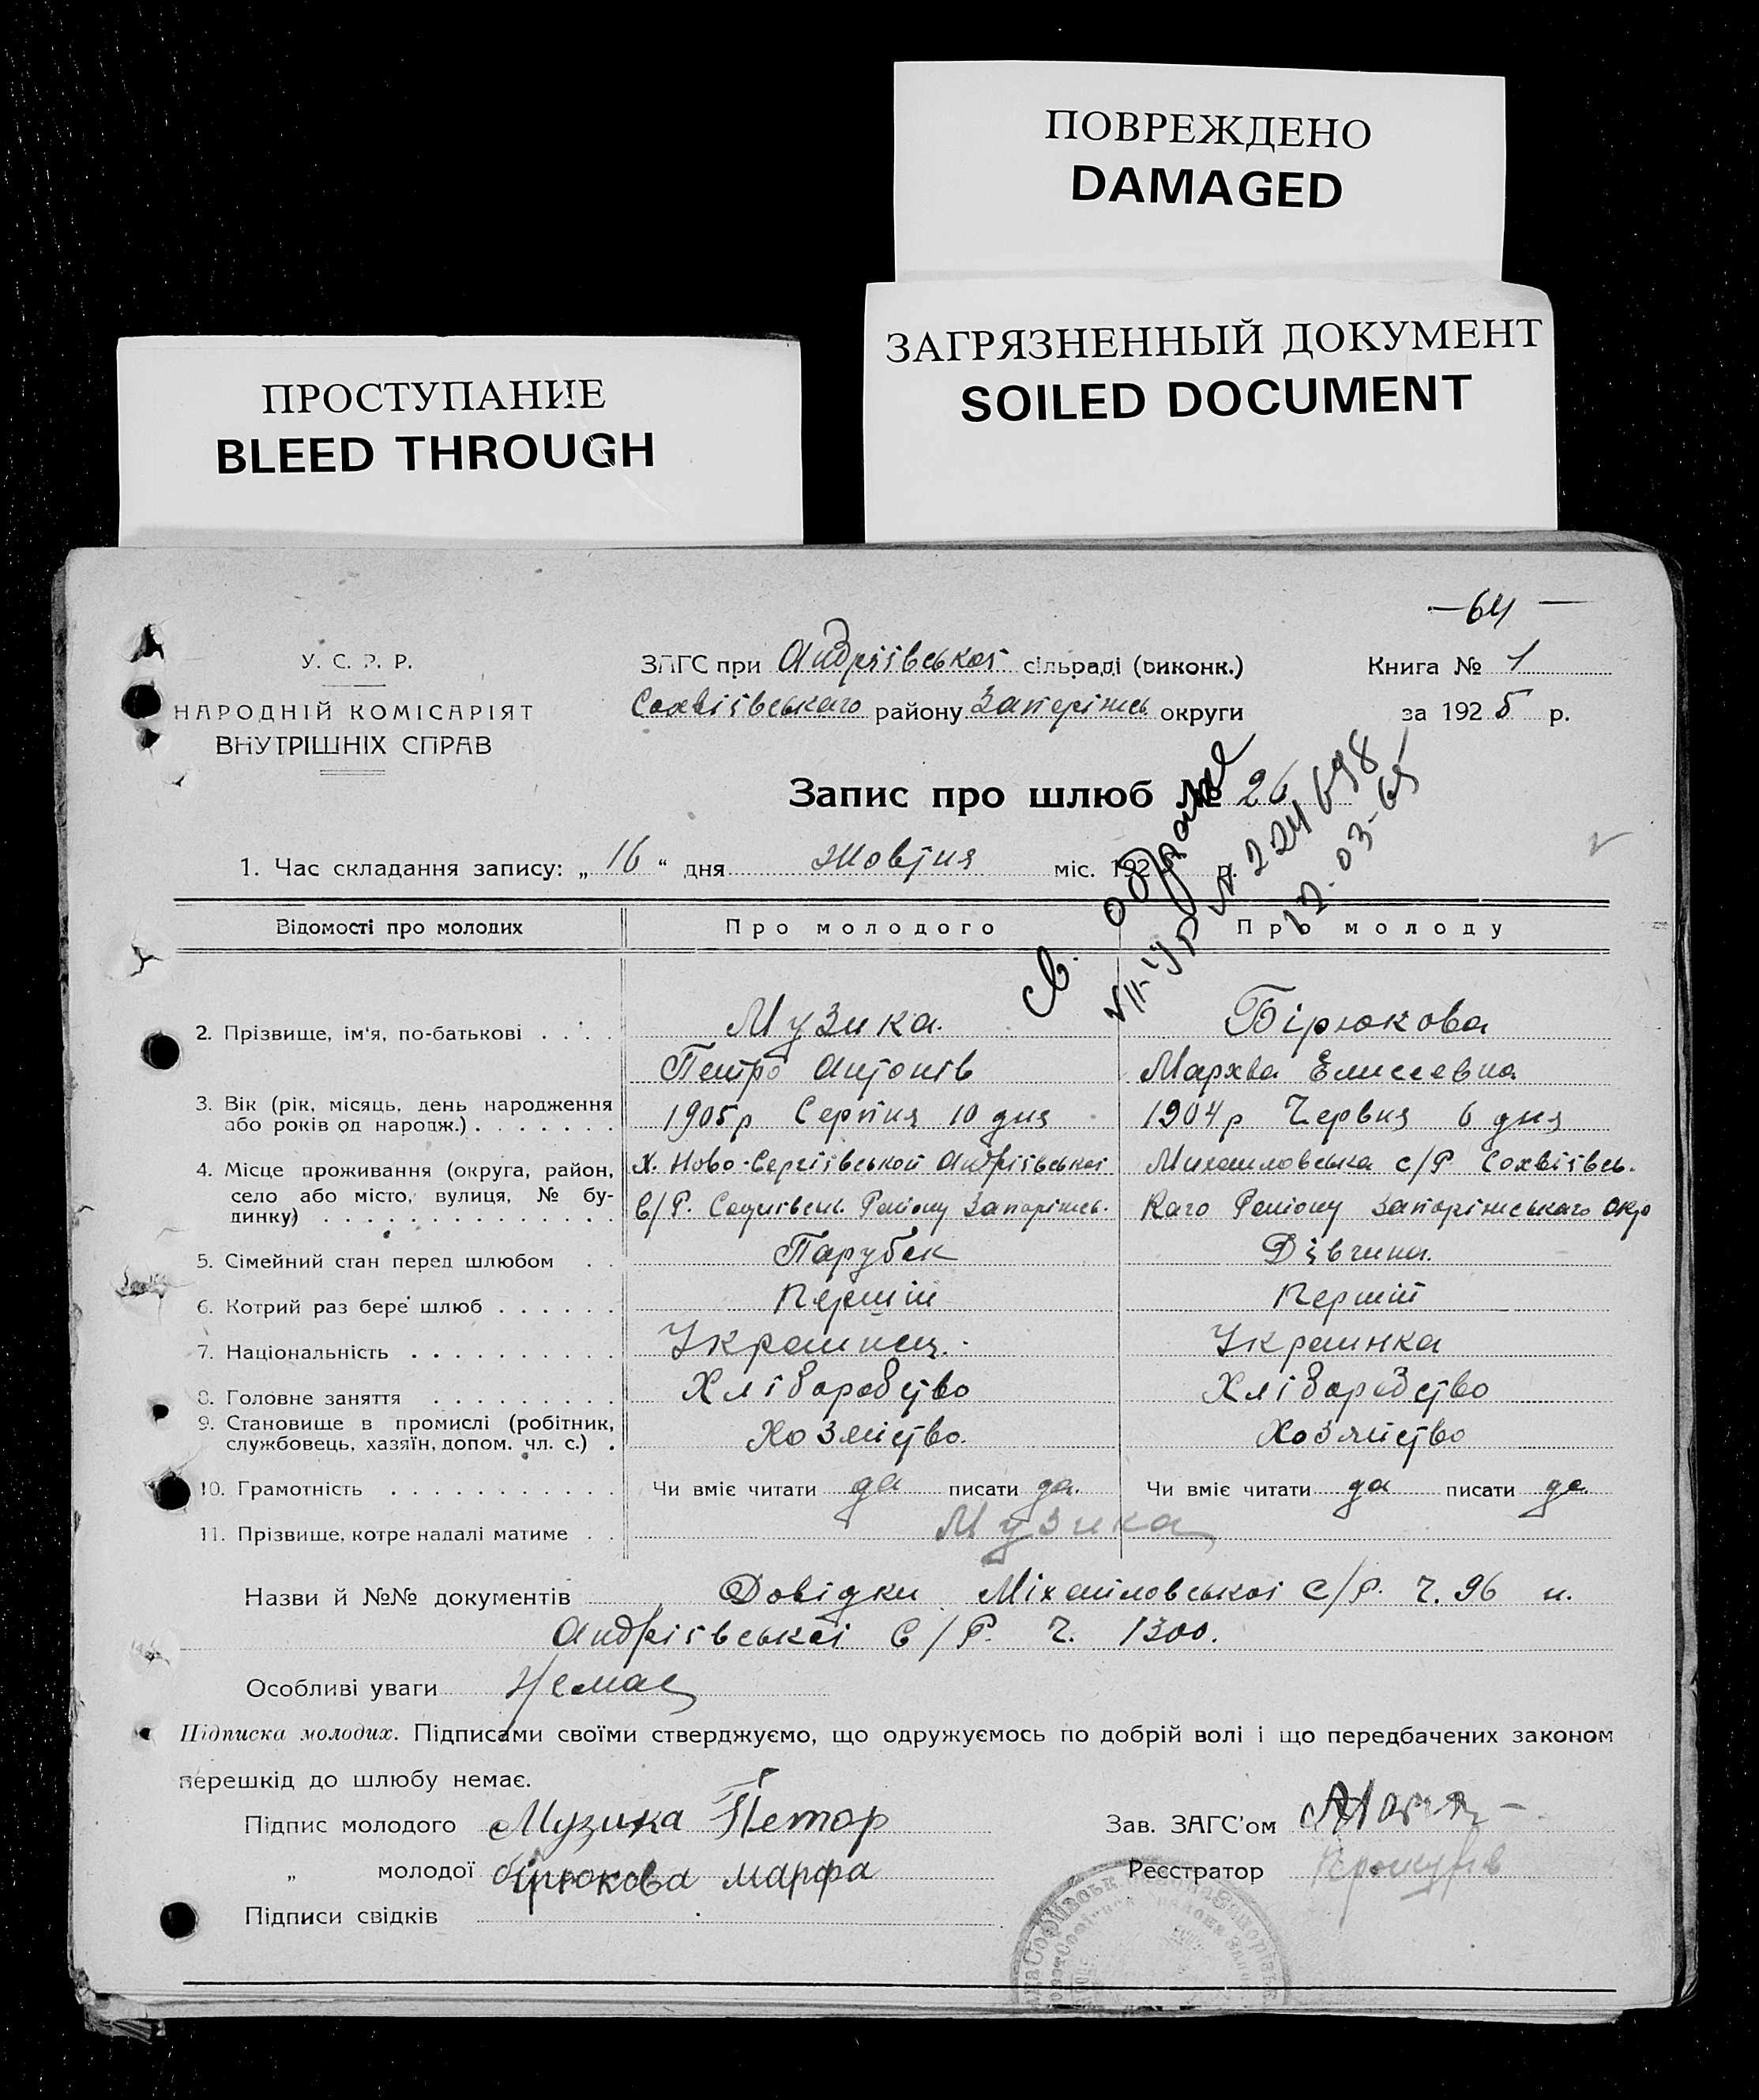 ПОВРЕЖДЕНО
DAMAGED
ЗАГРЯЗНЕННЫЙ ДОКУМЕНТ
SOILED DOCUMENT
ПРОСТУПАНИЕ
BLEED THROUGH
—64—
У. С. Р. Р.
НАРОДНІЙ КОМІСАРІЯТ
ВНУТРІШНІХ СПРАВ
ЗАГС при Андріївськоі сільраді (виконк.)
Сохвіївського району Запоріжсь округи
Книга № 1
за 1925 р.
Запис про шлюб № 26
св. о браке
VII-УР № 224698
12.03-65
1. Час складання запису: „ 16 “ дня Жовтня міс. 1925 р.
Відомості про молодих Про молодого Про молоду
2. Прізвище, ім'я, по-батькові Музика. Бірюкова
Петро Антонів Мархва Елисеевна
3. Вік (рік, місяць, день народження або років од народж.) 1905р Серпня 10 дня 1904р Червня 6 дня
4. Місце проживання (округа, район, Х. Ново-Сергіівськой Андріівськоі Михаиловська с/Р Сохвіівсь-
село або місто, вулиця, № бу-
динку) С/Р. Района Запоріжсь. Каго Району Запоріжського Окр
5. Сімейний стан перед шлюбом Парубок Дівчина.
6. Котрий раз бере шлюб Перший Перший
7. Національність Украинец. Украинка
8. Головне заняття Хліборобство Хліборобство
9. Становище в промислі (робітник,
службовець, хазяїн, допом. чл. с.) Хозяйство. Хозяйство
10. Грамотність Чи вміє читати да писати да. Чи вміє читати да писати да.
11. Прізвище, котре надалі матиме Музика
Назви й №№ документів Довідки Міхаиловськоі С/Р. Ч. 96 и.
Андріівськоі С/Р. Ч. 1300.
Особливі уваги Немае
Підписка молодих. Підписами своїми стверджуємо, що одружуємось по добрій волі і що передбачених законом
перешкід до шлюбу немає.
Підпис молодого Музика Петор
Зав. ЗАГС'ом
„ молодої Бірюкова Марфа
Реєстратор
Підписи свідків